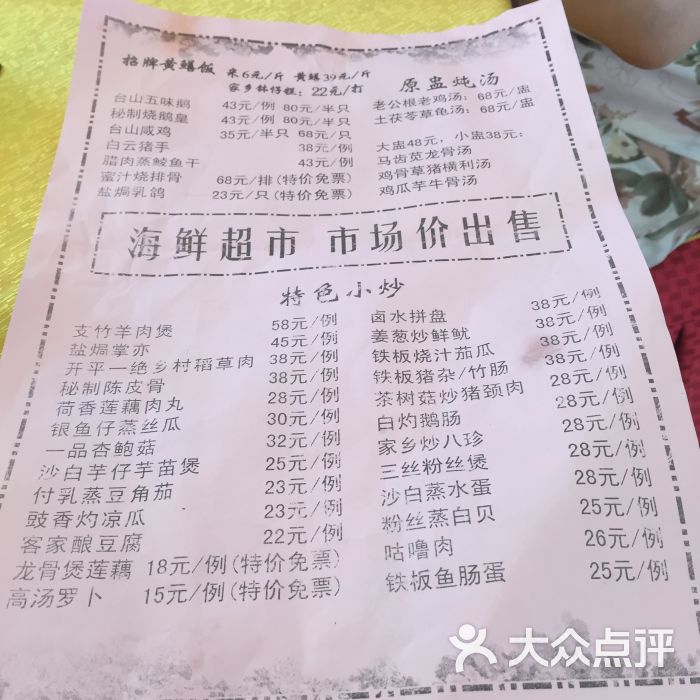 招牌黄鳝饭 米6元/斤 黄鳝39元/斤
家乡钵仔糕：22元/打
台山五味鹅 43元/例 80元/半只
秘制烧鹅皇 43元/例 80元/半只
台山咸鸡 35元/半只 68元/只
白云猪手 38元/例
腊肉蒸鲮鱼干 43元/例
蜜汁烧排骨 68元/排(特价免票)
盐焗乳鸽 23元/只(特价免票)
原盅炖汤
老公根老鸡汤：68元/盅
土茯苓草龟汤：68元/盅
大盅48元，小盅38元：
马齿苋龙骨汤
鸡骨草猪横利汤
鸡瓜芋牛骨汤
海鲜超市 市场价出售
特色小炒
支竹羊肉煲 58元/例
盐焗掌亦 45元/例
开平一绝乡村稻草肉 38元/例
秘制陈皮骨 38元/例
荷香莲藕肉丸 28元/例
银鱼仔蒸丝瓜 30元/例
一品杏鲍菇 32元/例
沙白芋仔芋苗煲 25元/例
付乳蒸豆角茄 23元/例
豉香灼凉瓜 23元/例
客家酿豆腐 22元/例
龙骨煲莲藕 18元/例(特价免票)
高汤罗卜 15元/例(特价免票)
卤水拼盘 38元/例
姜葱炒鲜鱿 38元/例
铁板烧汁茄瓜 38元/例
铁板猪杂/竹肠 38元/例
茶树菇炒猪颈肉 28元/例
白灼鹅肠 28元/例
家乡炒八珍 28元/例
三丝粉丝煲 28元/例
沙白蒸水蛋 28元/例
粉丝蒸白贝 25元/例
咕噜肉 26元/例
铁板鱼肠蛋 25元/例
大众点评